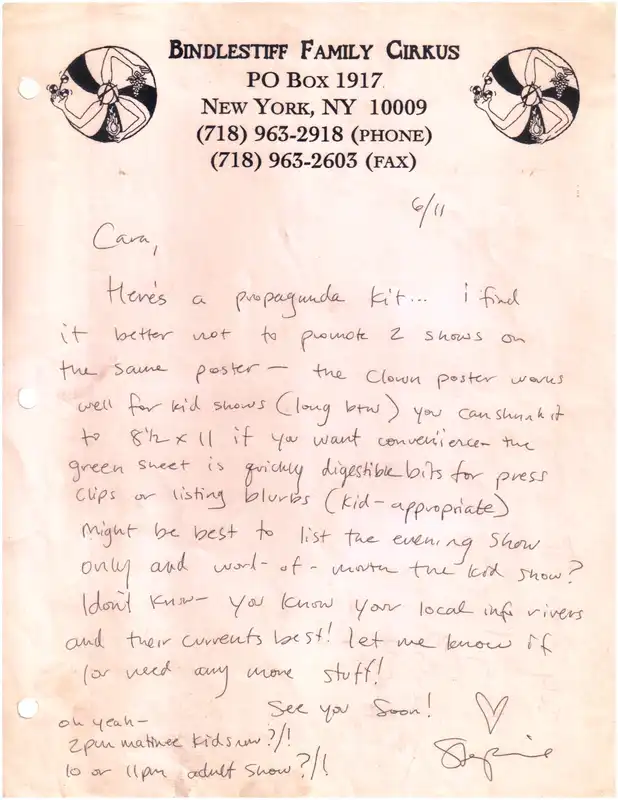 BINDLESTIFF FAMILY CIRKUS
PO BOX 1917
NEW YORK, NY 10009
(718) 963-2918 (PHONE)
(718) 963-2603 (FAX)
6/11
Cara,
Here's a propaganda kit... i find
it better not to promote 2 shows on
the same poster — the clown poster works
well for kid shows (long btw) you can shrink it
to 8½ x 11 if you want convenience – the
green sheet is quickly digestible bits for press
clips or listing blurbs (kid-appropriate)
Might be best to list the evening show
only and word-of-mouth the kid show?
I don't know – you know your local info rivers
and their currents best! let me know if
/or need any more stuff!
See you soon! ♡
oh yeah–
2pm matinee kids
10 or 11pm adult show?/!